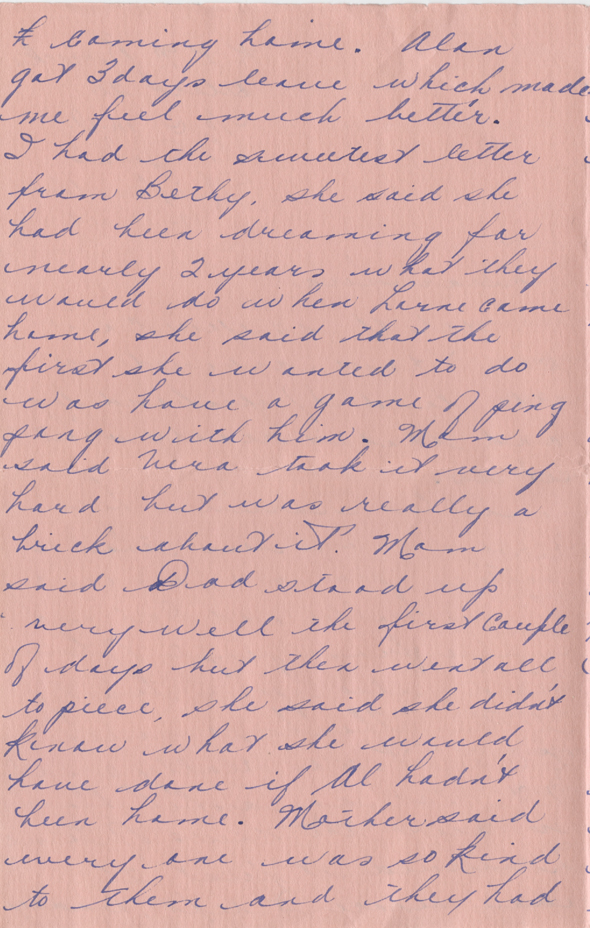 & coming home. Alan
got 3 days leave which made
me feel much better.
I had the sweetest letter
from Bethy, she said she
had been dreaming for
nearly 2 years what they
would do when Lorne came
home, she said that the
first she wanted to do
was have a game of ping
pong with him. Mom
said Vera took it very
hard but was really a
brick about it. Mom
said Dad stood up
very well the first couple
of days but then went all
to piece, she said she didn't
know what she would
have done if Al hadn't
been home. Mother said
every one was so kind
to them and they had